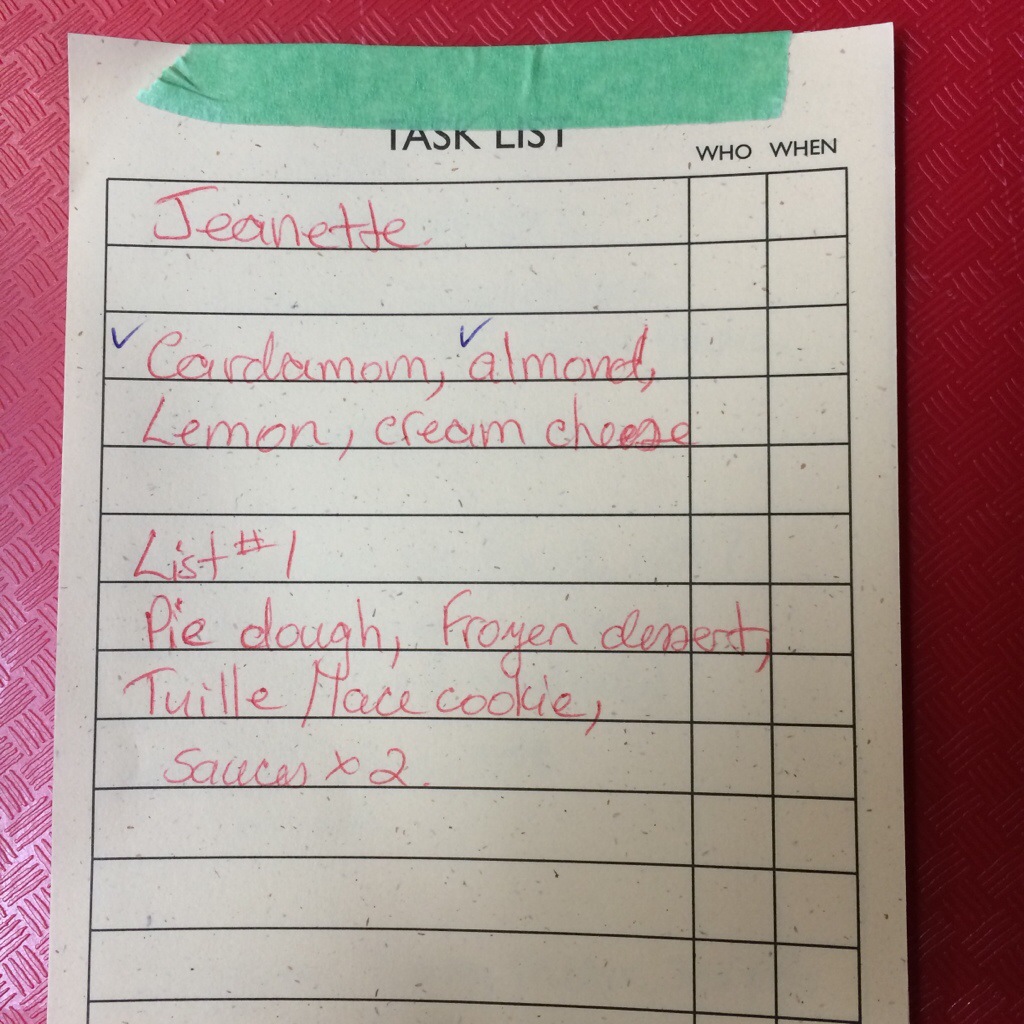 TASK LIST
WHO WHEN
Jeanette
Cardamom, almond,
Lemon, cream cheese
List #1
Pie dough, Frozen dessert,
Tuille / lace cookie,
Sauces x 2.